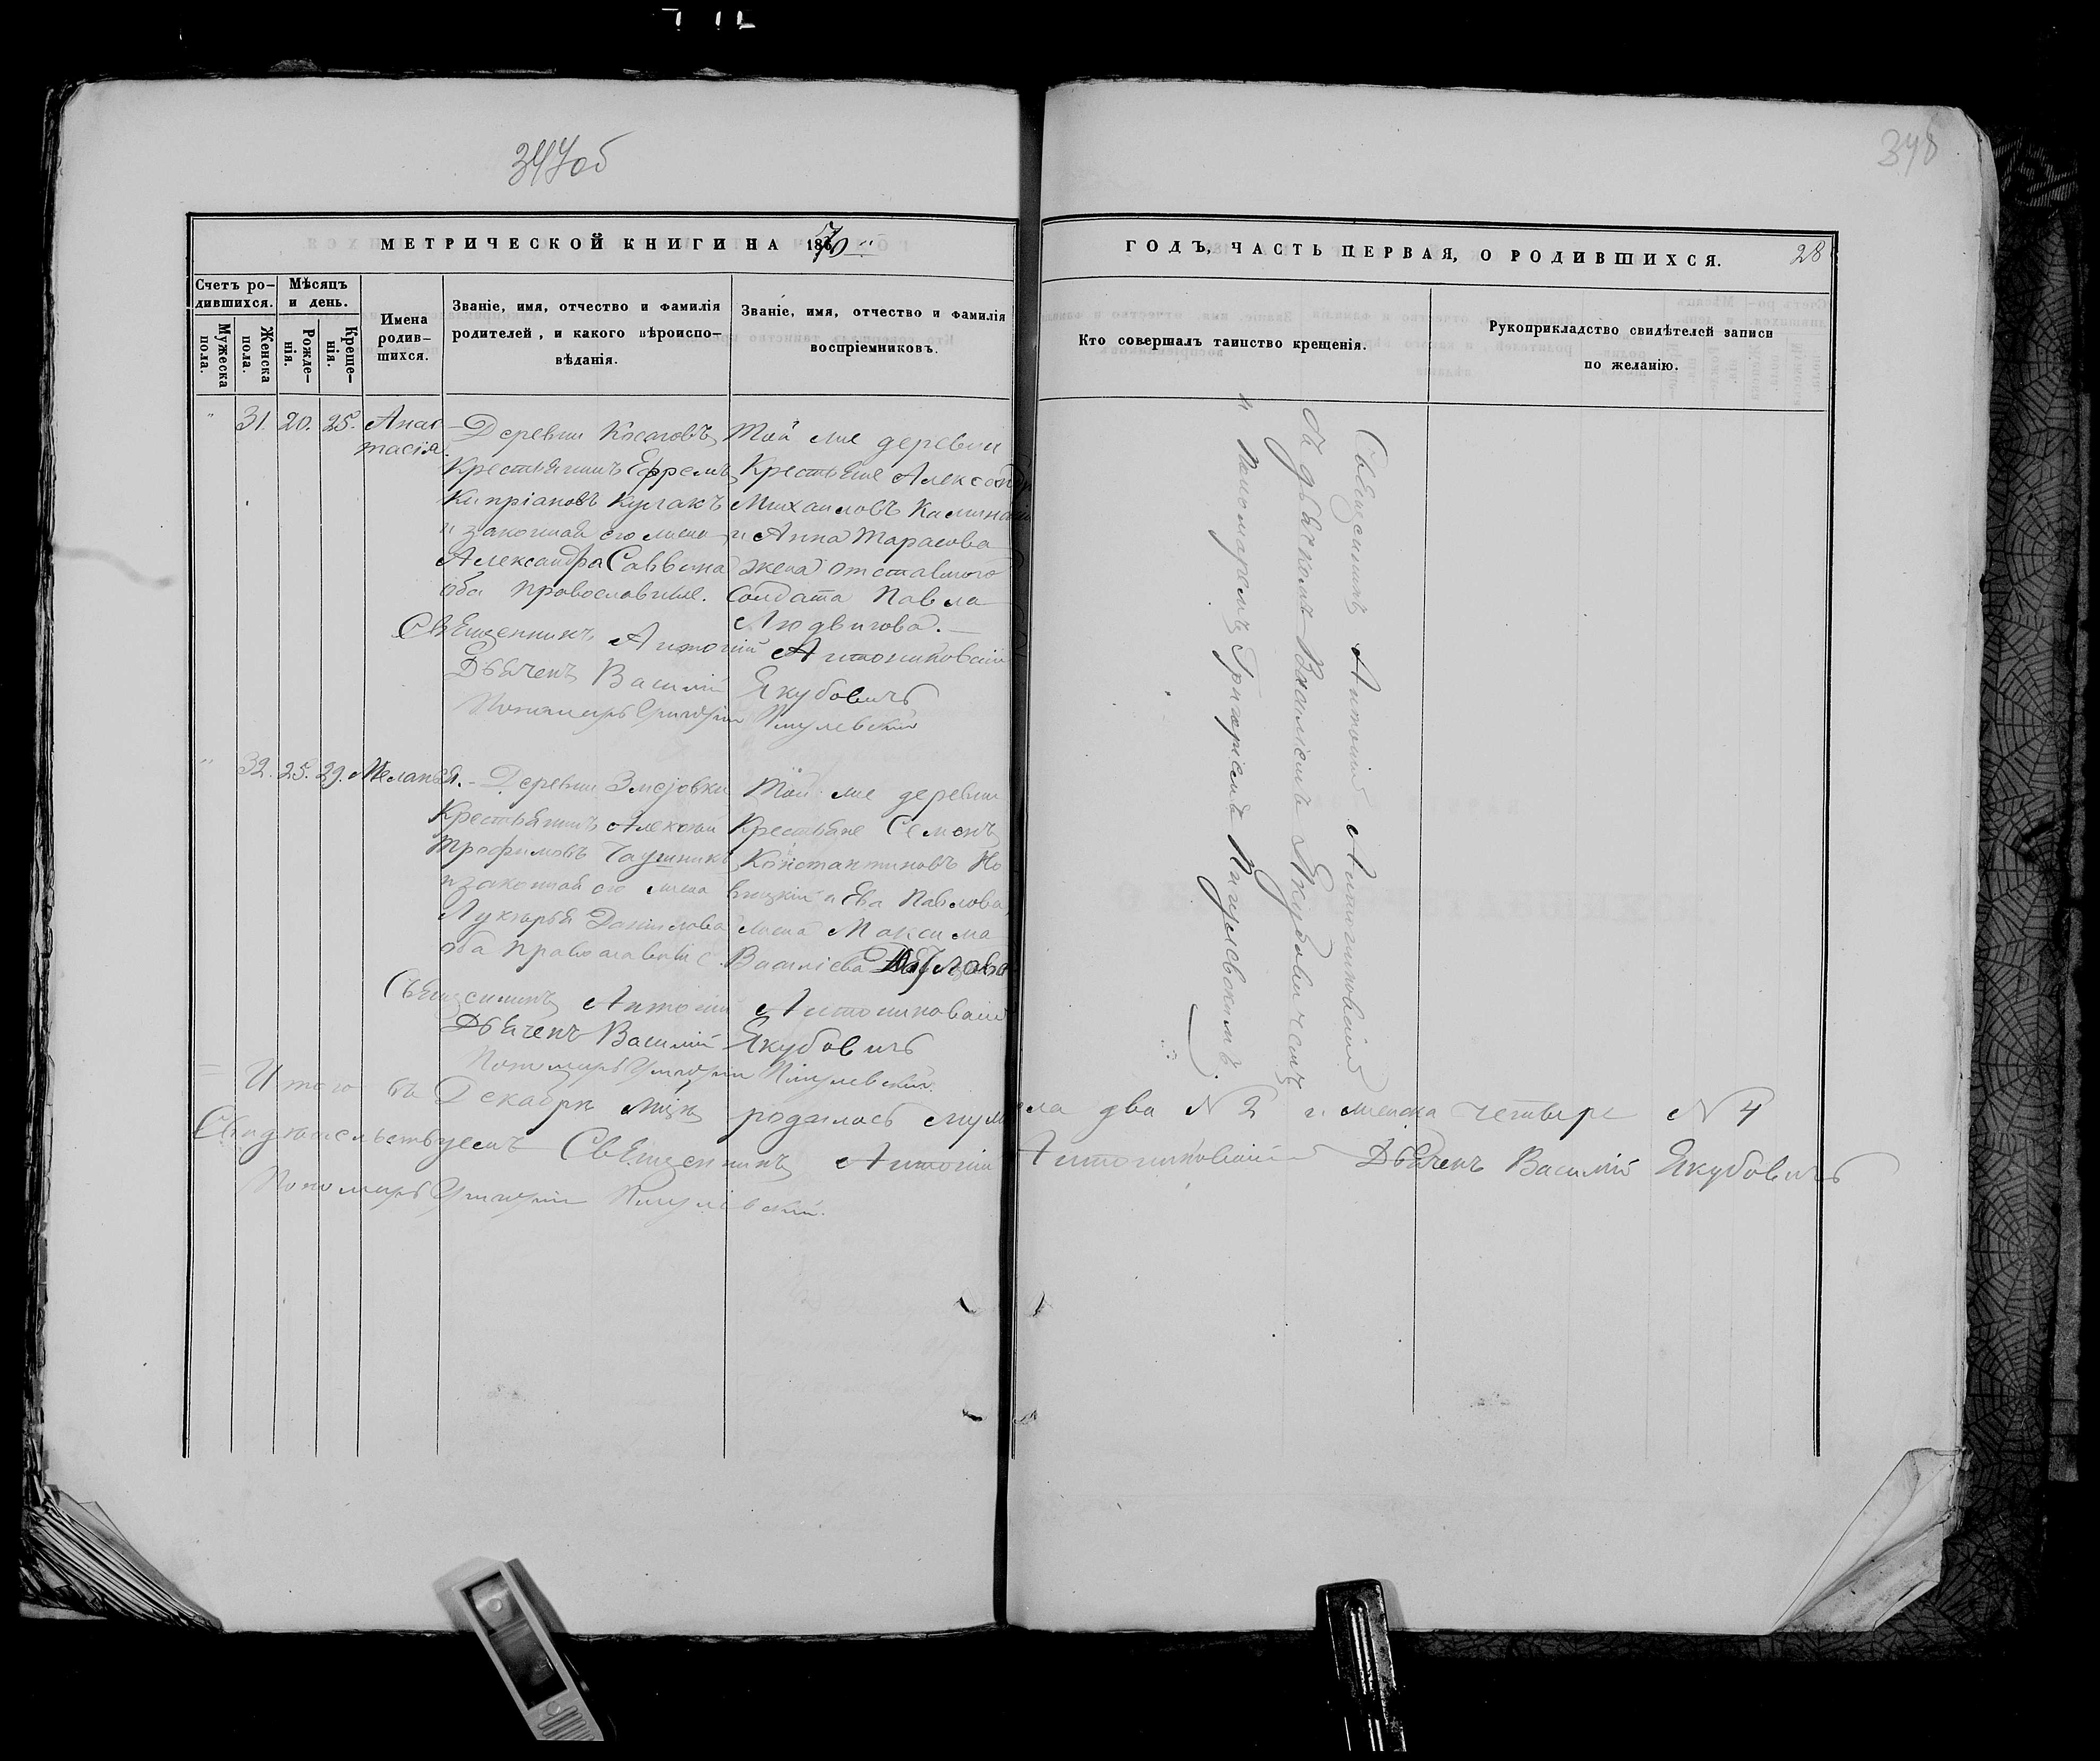 347об
348
МЕТРИЧЕСКОЙ КНИГИ НА 1870
ГОДЪ, ЧАСТЬ ПЕРВАЯ, О РОДИВШИХСЯ.
28
Счетъ ро-
дившихся.
Мужеска
пола.
Женска
пола.
Мѣсяцъ
и день.
Рожде-
нія.
Креще-
нія.
Имена
родив-
шихся.
Званіе, имя, отчество и фамилія
родителей, и какого вѣроиспо-
вѣданія.
Званіе, имя, отчество и фамилія
воспріемниковъ.
Кто совершалъ таинство крещенія.
Рукоприкладство свидѣтелей записи
по желанію.
" 31. 20. 25. Анас
тасія.
Деревни
Крестьянинъ Ефремъ
Кипріановъ Кулакъ
и законная его жена
Александра Саввина
оба православные.
Той же деревни
Крестьяне
Михаиловъ
и Анна Тарасова
жена отставного
солдата Павла
Людвигова.
Священникъ Антоній
Дьячекъ Василій Якубовичъ
Пономарь Григорій
" 32. 25. 29. Меланья.
Деревни
Крестьянинъ Алексѣй
Трофимовъ
и законная его жена
Лукерья Данилова
оба православные
Той же деревни
Крестьяне Семенъ
Константиновъ Но
вицкій и Ева Павлова,
жена Максима
Василіева
Священникъ Антоній
Дьячекъ Василій Якубовичъ
Пономарь Григорій
Священникъ Антоній
Съ дьячкомъ Василіемъ Якубовичемъ
и Пономаремъ Григоріемъ
Итого въ Декабрѣ м-цѣ родилось муж. пола два № 2 и женска четыре № 4
Свидѣтельствуемъ Священникъ Антоній Дьячекъ Василій Якубовичъ
Пономарь Григорій